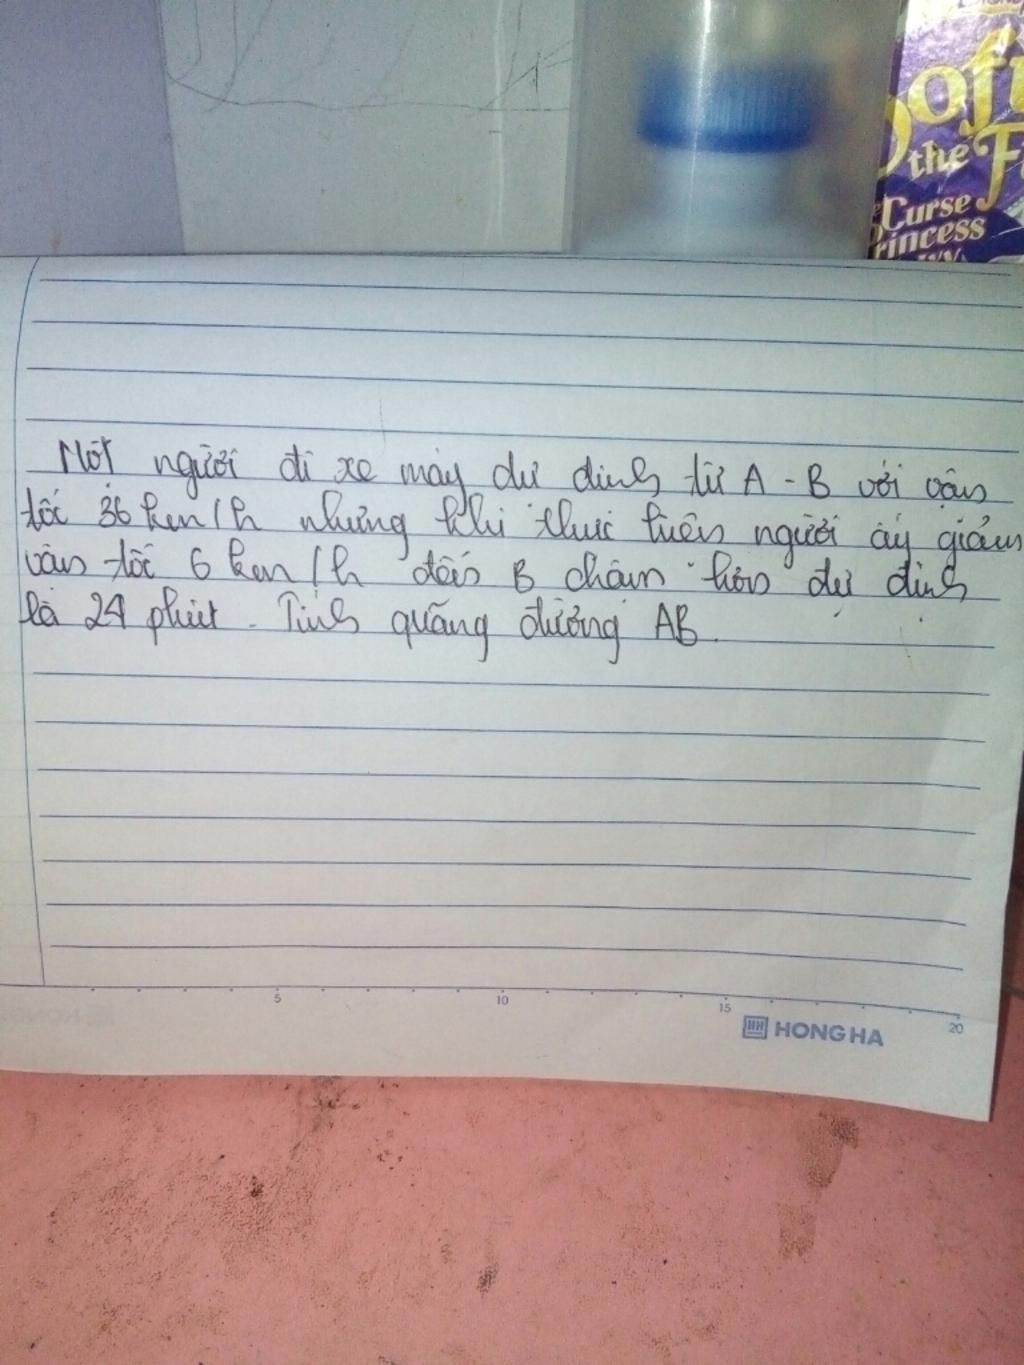 ofi
the F
Curse
rincess
Một người đi xe máy dự định từ A - B với vận
tốc 36 km/h nhưng khi thực hiện người ấy giảm
vận tốc 6 km/h đến B chậm hơn dự định
là 24 phút. Tính quãng đường AB.
5 10 15 20
HH HONG HA